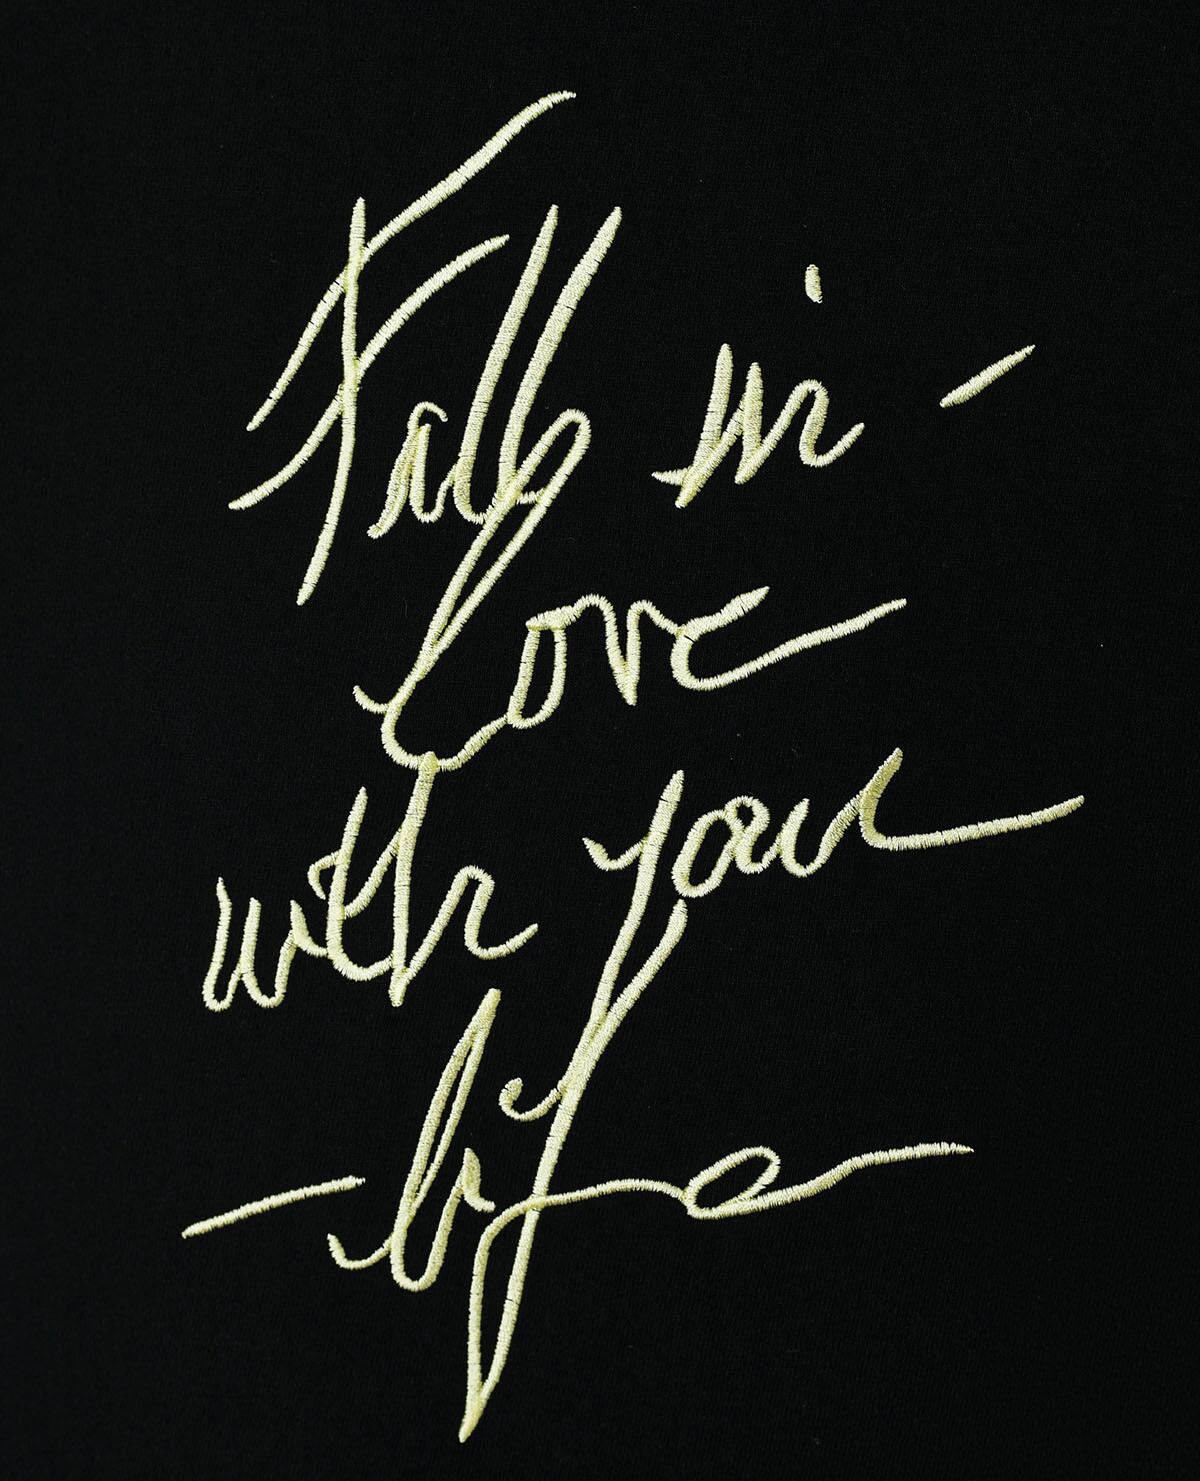 Fall in -
love
with your
- life